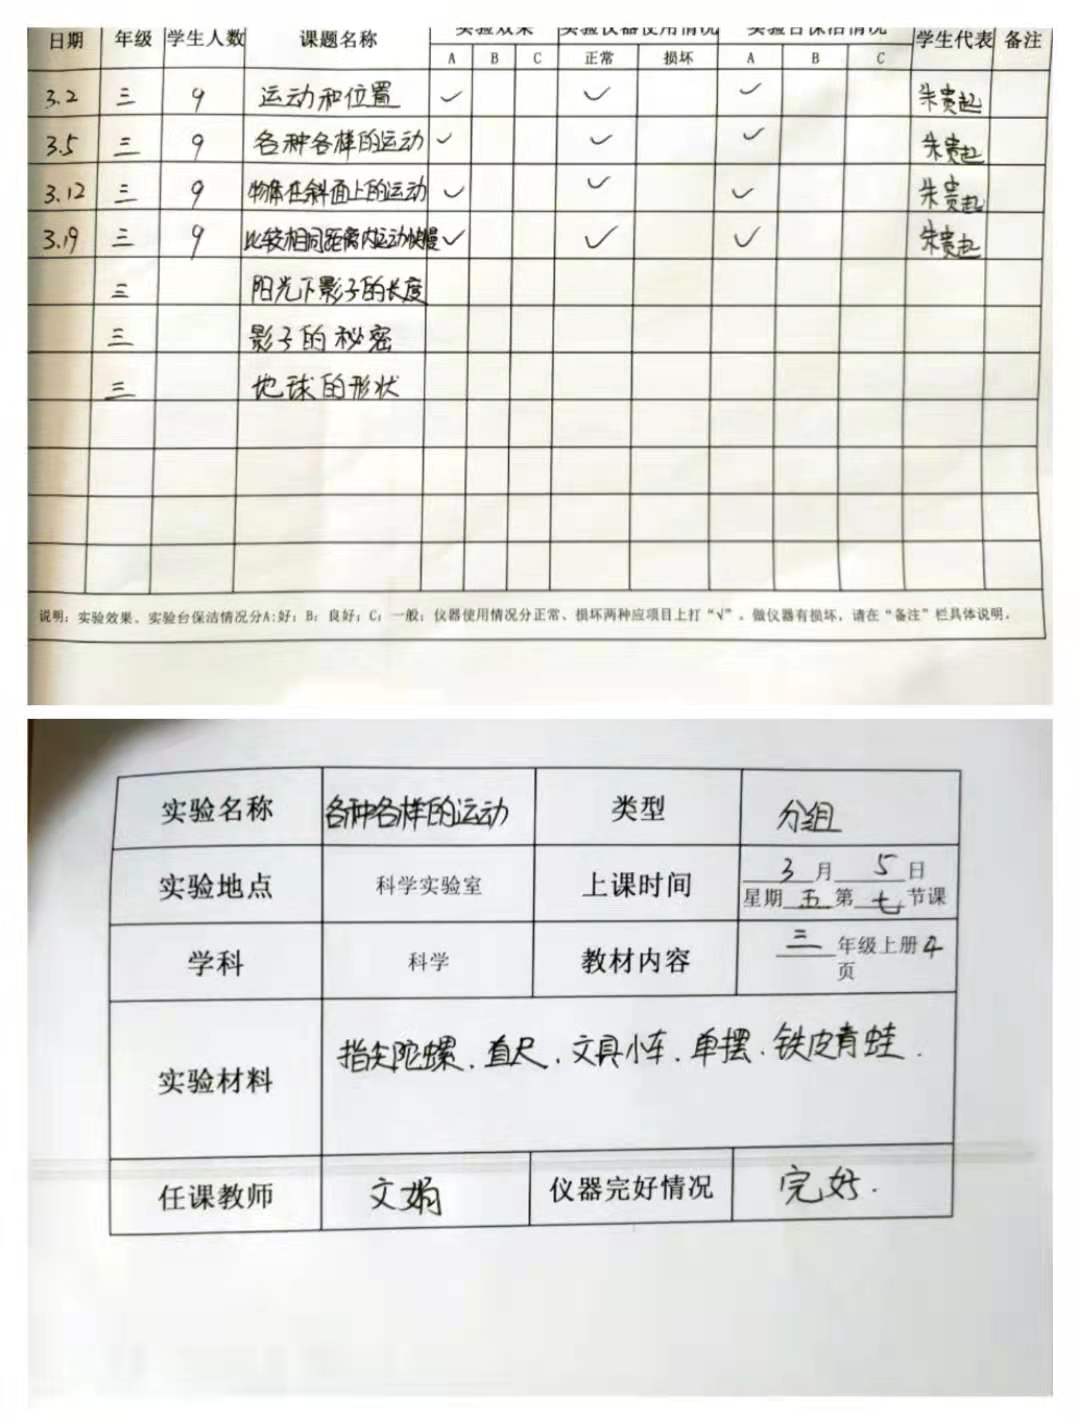 日期 年级 学生人数 课题名称 实验效果 实验仪器使用情况 实验台保洁情况 学生代表 备注
A B C 正常 损坏 A B C
3.2 三 9 运动和位置 ✓ ✓ ✓ 朱贵起
3.5 三 9 各种各样的运动 ✓ ✓ ✓ 朱贵起
3.12 三 9 物体在斜面上的运动 ✓ ✓ ✓ 朱贵起
3.19 三 9 比较相同距离内运动快慢 ✓ ✓ ✓ 朱贵起
三 阳光下影子的长度
三 影子的秘密
三 地球的形状
说明：实验效果、实验台保洁情况分A:好；B：良好；C：一般；仪器使用情况分正常、损坏两种应项目上打“√”。做仪器有损坏，请在“备注”栏具体说明。
实验名称 各种各样的运动 类型 分组
实验地点 科学实验室 上课时间 3月5日
星期五第七节课
学科 科学 教材内容 三年级上册4
页
实验材料 指尖陀螺、直尺、文具小车、单摆、铁皮青蛙.
任课教师 文娟 仪器完好情况 完好.